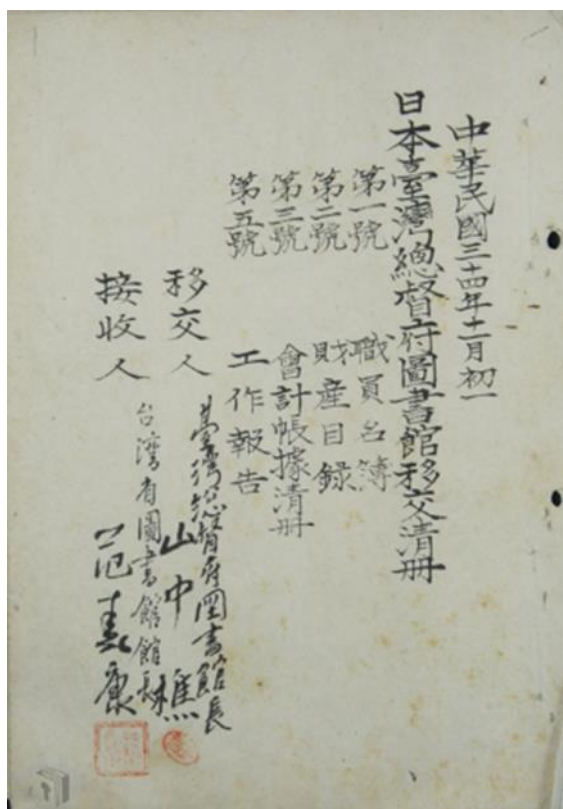 中華民國三十四年十二月初一
日本臺灣總督府圖書館移交清冊
第一號 職員名簿
第二號 財產目錄
第三號 會計帳據清冊
第五號 工作報告
移交人 臺灣總督府圖書館長 山中樵
接收人 台灣省圖書館館長 范壽康